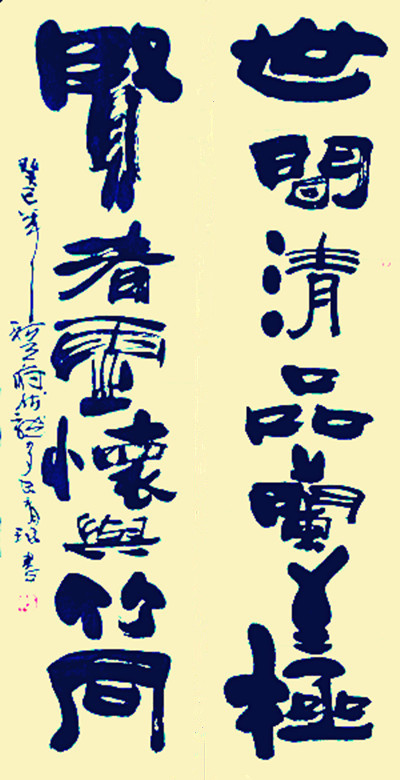 世間清品蘭至極
賢者虛懷與竹同
癸巳年